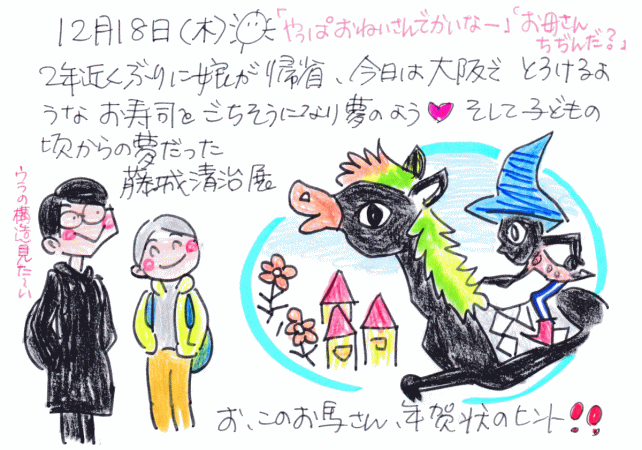 12月18日(木)
「やっぱおねいさんでかいなー」
「お母さん
ちぢんだ？」
2年近くぶりに娘が帰省、今日は大阪で とろけるよ
うな お寿司を ごちそうになり夢のよう♥ そして子どもの
頃からの夢だった
藤城清治展
ウラの構造見た〜い
お、このお馬さん、年賀状のヒント!!